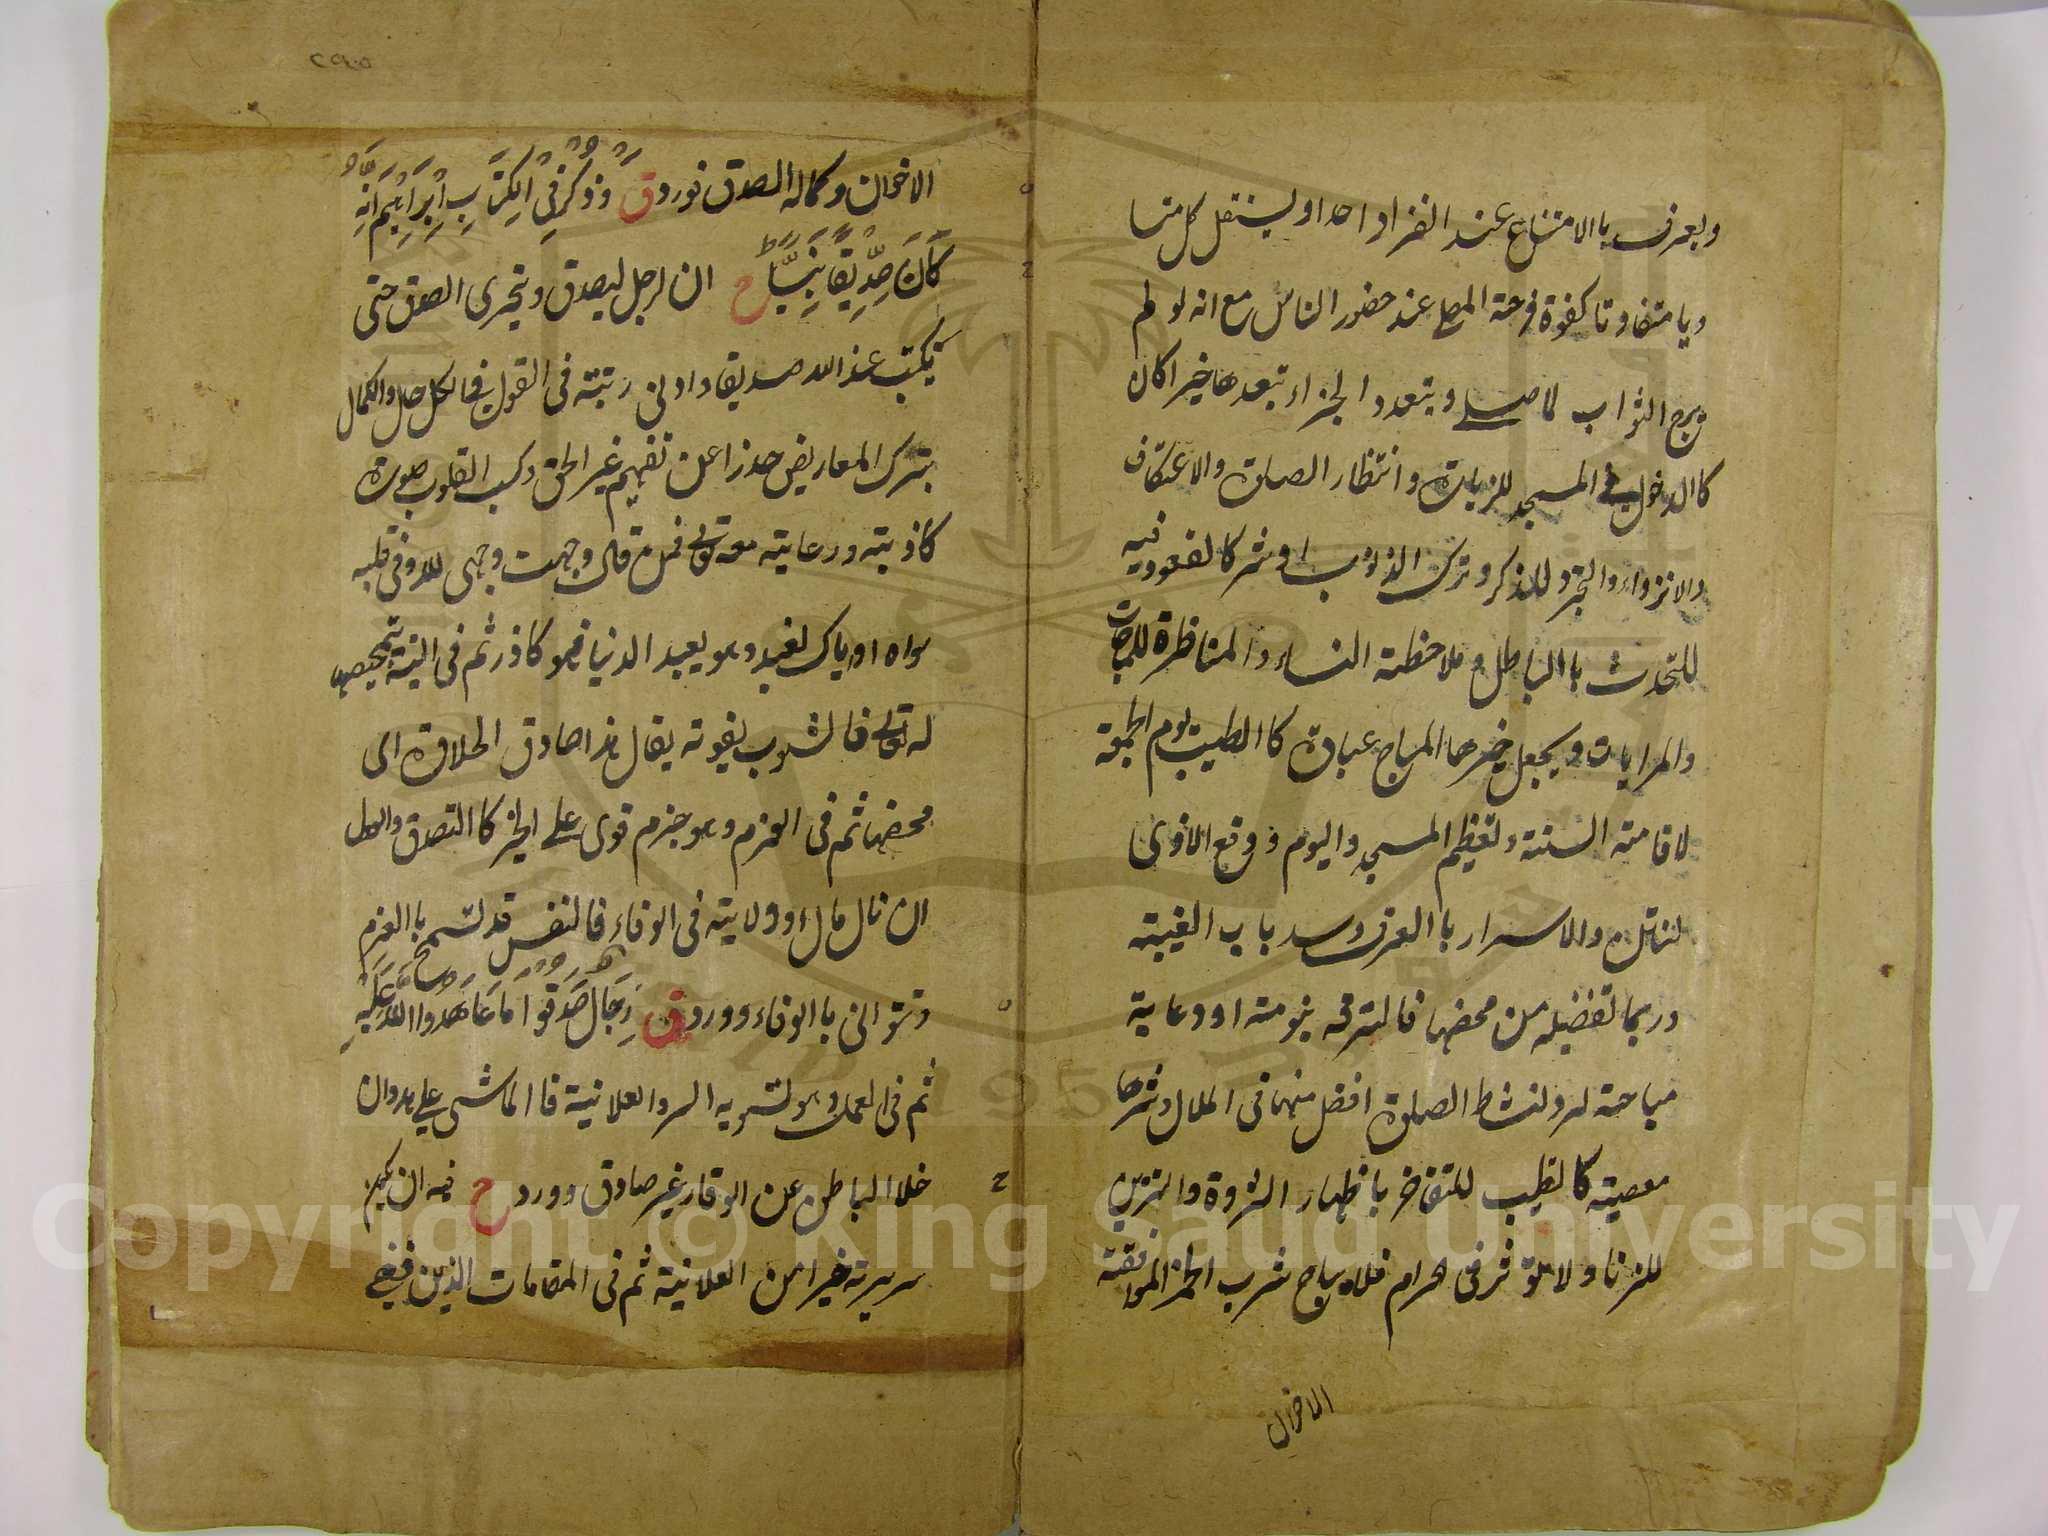 ويعرف باالامتناع عند انفراد احدا ويستقل كل منها
ويا متفاوتا كفوة فرحة المصلي عند حضور الناس مع انه لو لم
يرج الثواب لا صلى ويتعدد الجزاء بتعددها خيرا كان
كاالدخول في المسجد للزيارة وانتظار الصلوة والاعتكاف
والانزواء والتجرد للذكر وترك الذنوب او شر كالقعود فيه
للتحدث باالباطل وملاحظة النساء والمناظرة للمباهات
والمرايات ويجعل خيرها المباح عبادة كاالطيب يوم الجمعة
لاقامة السنة وتعظيم المسجد واليوم ودفع الاذى
والاسرار باالعرف وسد باب الغيبة
وربما تفضيله من محضها فالترفه بنومة او دعابة
مباحة لرد نشاط الصلوة افضل منها في الملال وشرها
معصية كالتطيب للتفاخر باظهار الثروة والتزين
للزنا ولا تؤثر في الحرام فلا يباح شرب الخمر لموافقة
الاخوان
٢٩٠٥
الاخوان وكماله الصدق فورد ق وَاذْكُرْ فِي الْكِتَبِ اِبْرَاهِيمَ اِنَّهُ
كَانَ صِدِّيقًا نَبِيًّا ح ان الرجل ليصدق ويتحرى الصدق حتى
يكتب عند الله صديقا وادنى رتبته في القول في الكل حال والكمال
بترك المعاريض حذرا عن تفهيم غير الحق وكسب القلوب صورة
كاذبة ورعايته معه تعالى فمن قال وجهت وجهي لله وفي قلبه
سواه او اياك نعبد وهو يعبد الدنيا فهو كاذب ثم في النية بتمحيصها
له تعالى فالشوب يفوته يقال هذا صادق الحلاوة اى
محضها ثم في العزم وهو جزم قوى على الخير كاالتصدق والعدل
ان نال مالا او ولاية في الوفاء فالنفس قد تسمح باالعزم
وتتوانى باالوفاء وورد ق رِجَالٌ صَدَقُوا مَا عَاهَدُوا اللّٰهَ عَلَيْهِ
ثم في العمل وهو تسوية السر والعلانية فاالماشى على هدوان
خلا الباطن عن الوقار غير صادق وورد ح فيه ان يكون
سريرته خيرا من العلانية ثم في المقامات الدين فيقع